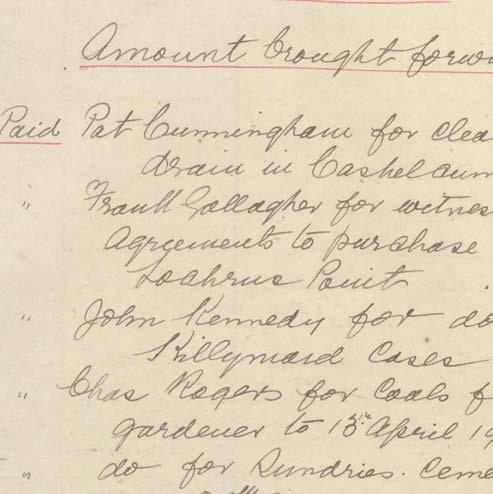 Amount brought forw
Paid Pat Cunningham for clea
drain in Cashelaum
" Frank Gallagher for witnes
agreements to purchase
Loahrus Point
" John Kennedy for do
Killymard Cases
" Chas Rogers for Coals f
gardener to 13th April 19
" do for Sundries. Ceme